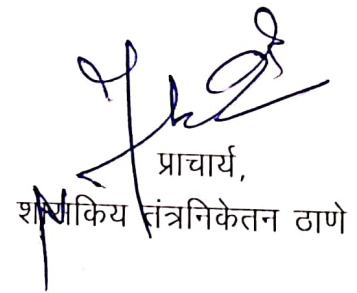 प्राचार्य,
शासकिय तंत्रनिकेतन ठाणे